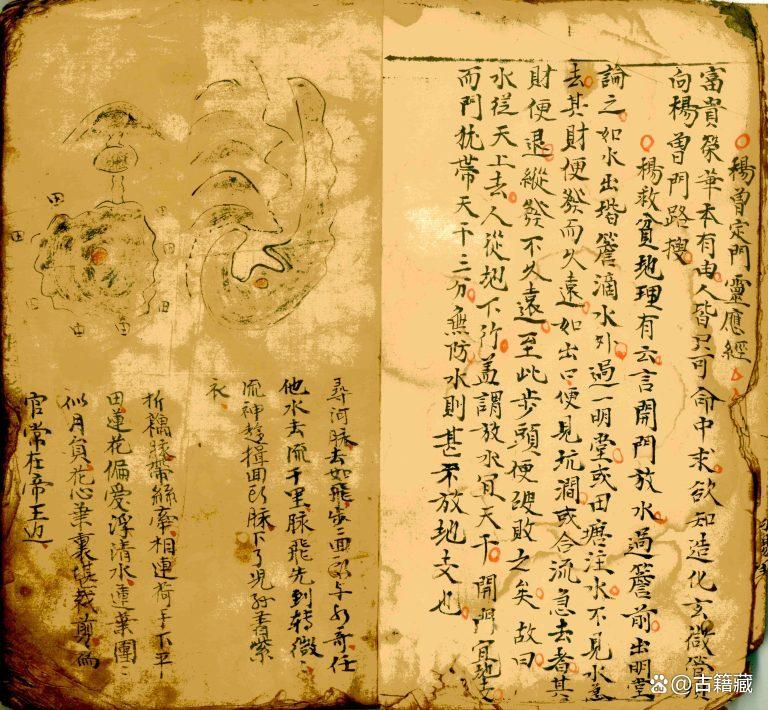 楊曾定門靈應經
富貴榮華本有由人皆只可命中求欲知造化玄微管
向楊曾門路搜
楊救貧地理有云言開門放水過簷前出明堂
論之如水出堦簷滴水外過一明堂或田塘注水不見水急
去其財便發而久遠如出口便見坑澗或合流急去者其
財便退縱發不久遠至此步頭便破敗之矣故曰
水從天上去人從地下行蓋謂放水宜天干開門宜地支
而門犹帶天干三分無防水則甚不放地支也
尋河脉去如飛步二面
他水去流千里脉飛先到转微
流神
脉下了児孙着紫
衣
折藕
絲牽相連荷
下平
田蓮花偏愛浮清水連葉團
似月負花心葉裏
裁剪為
官常在帝王边
田
田
田
田
田
田
田
@古籍藏